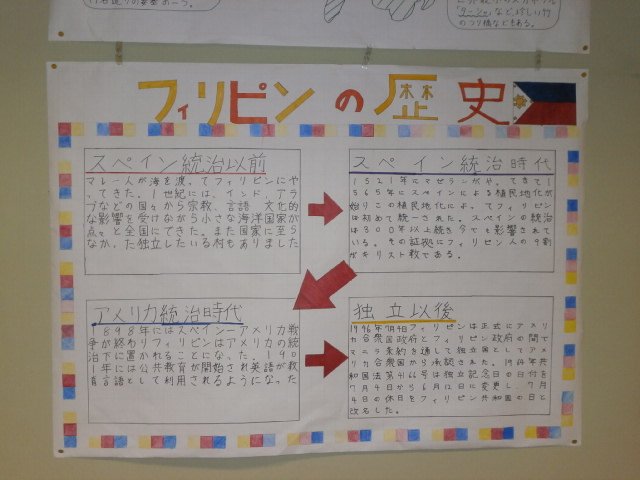 「ターシャ」など珍しい竹
のつり橋などもある。
フィリピンの歴史
スペイン統治以前
マレー人が海を渡ってフィリピンにや
ってきた。1世紀には、インド、アラ
ブなどの国々から宗教、言語、文化的
な影響を受けながら小さな海洋国家が
点々と全国にできた。また国家に至ら
なかった独立している村もありました
スペイン統治時代
1521年にマゼランがやってきて1
565年にスペインによる植民地化が
始りこの植民地化によってフィリピン
は初めて統一された。スペインの統治
は300年以上続き今でも影響されて
いる。その証拠にフィリピン人の9割
がキリスト教である。
アメリカ統治時代
1898年にはスペインーアメリカ戦
争が終わりフィリピンはアメリカの統
治下に置かれることになった。190
1年には公共教育が開始され英語が教
育言語として利用されるようになった
独立以後
1946年7月4日フィリピンは正式にアメリ
カ合衆国政府とフィリピン政府の間で
マニラ条約を通して独立国としてアメ
リカ合衆国から承認された。1964年共
和国法第4166号は独立記念日の日付を
7月4日から6月12日に変更し、7月
4日の休日をフィリピン共和国の日と
改名した。